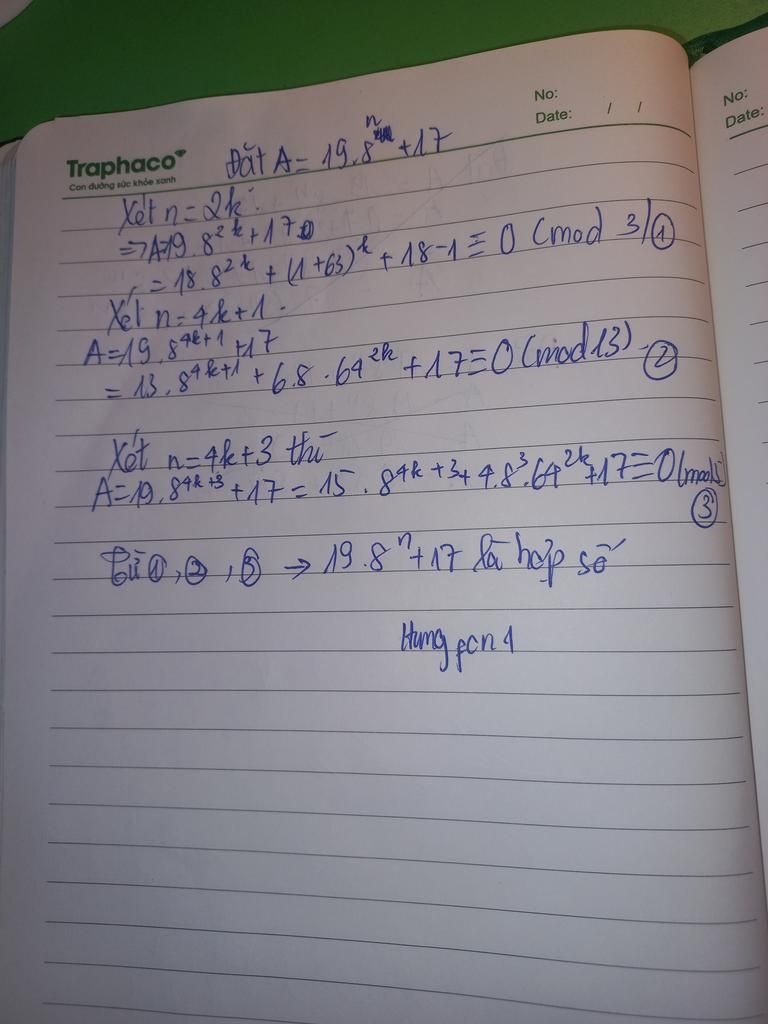 No:
Date: / /
No:
Date:
Traphaco
Con đường sức khỏe xanh
Đặt A = 19.8^n + 17
Xét n = 2k.
=> A=19.8^2k + 17
= 18.8^2k + (1+63)^k + 18-1 ≡ 0 (mod 3) ①
Xét n = 4k+1.
A = 19.8^4k+1 + 17
= 13.8^4k+1 + 6.8.64^2k + 17 ≡ 0 (mod 13). ②
Xét n=4k+3 thì
A=19.8^4k+3 + 17 = 15.8^4k+3 + 4.8^3.64^2k + 17 ≡ 0 (mod 5) ③
Từ ①, ②, ③ → 19.8^n + 17 là hợp số
Hung pcn 1